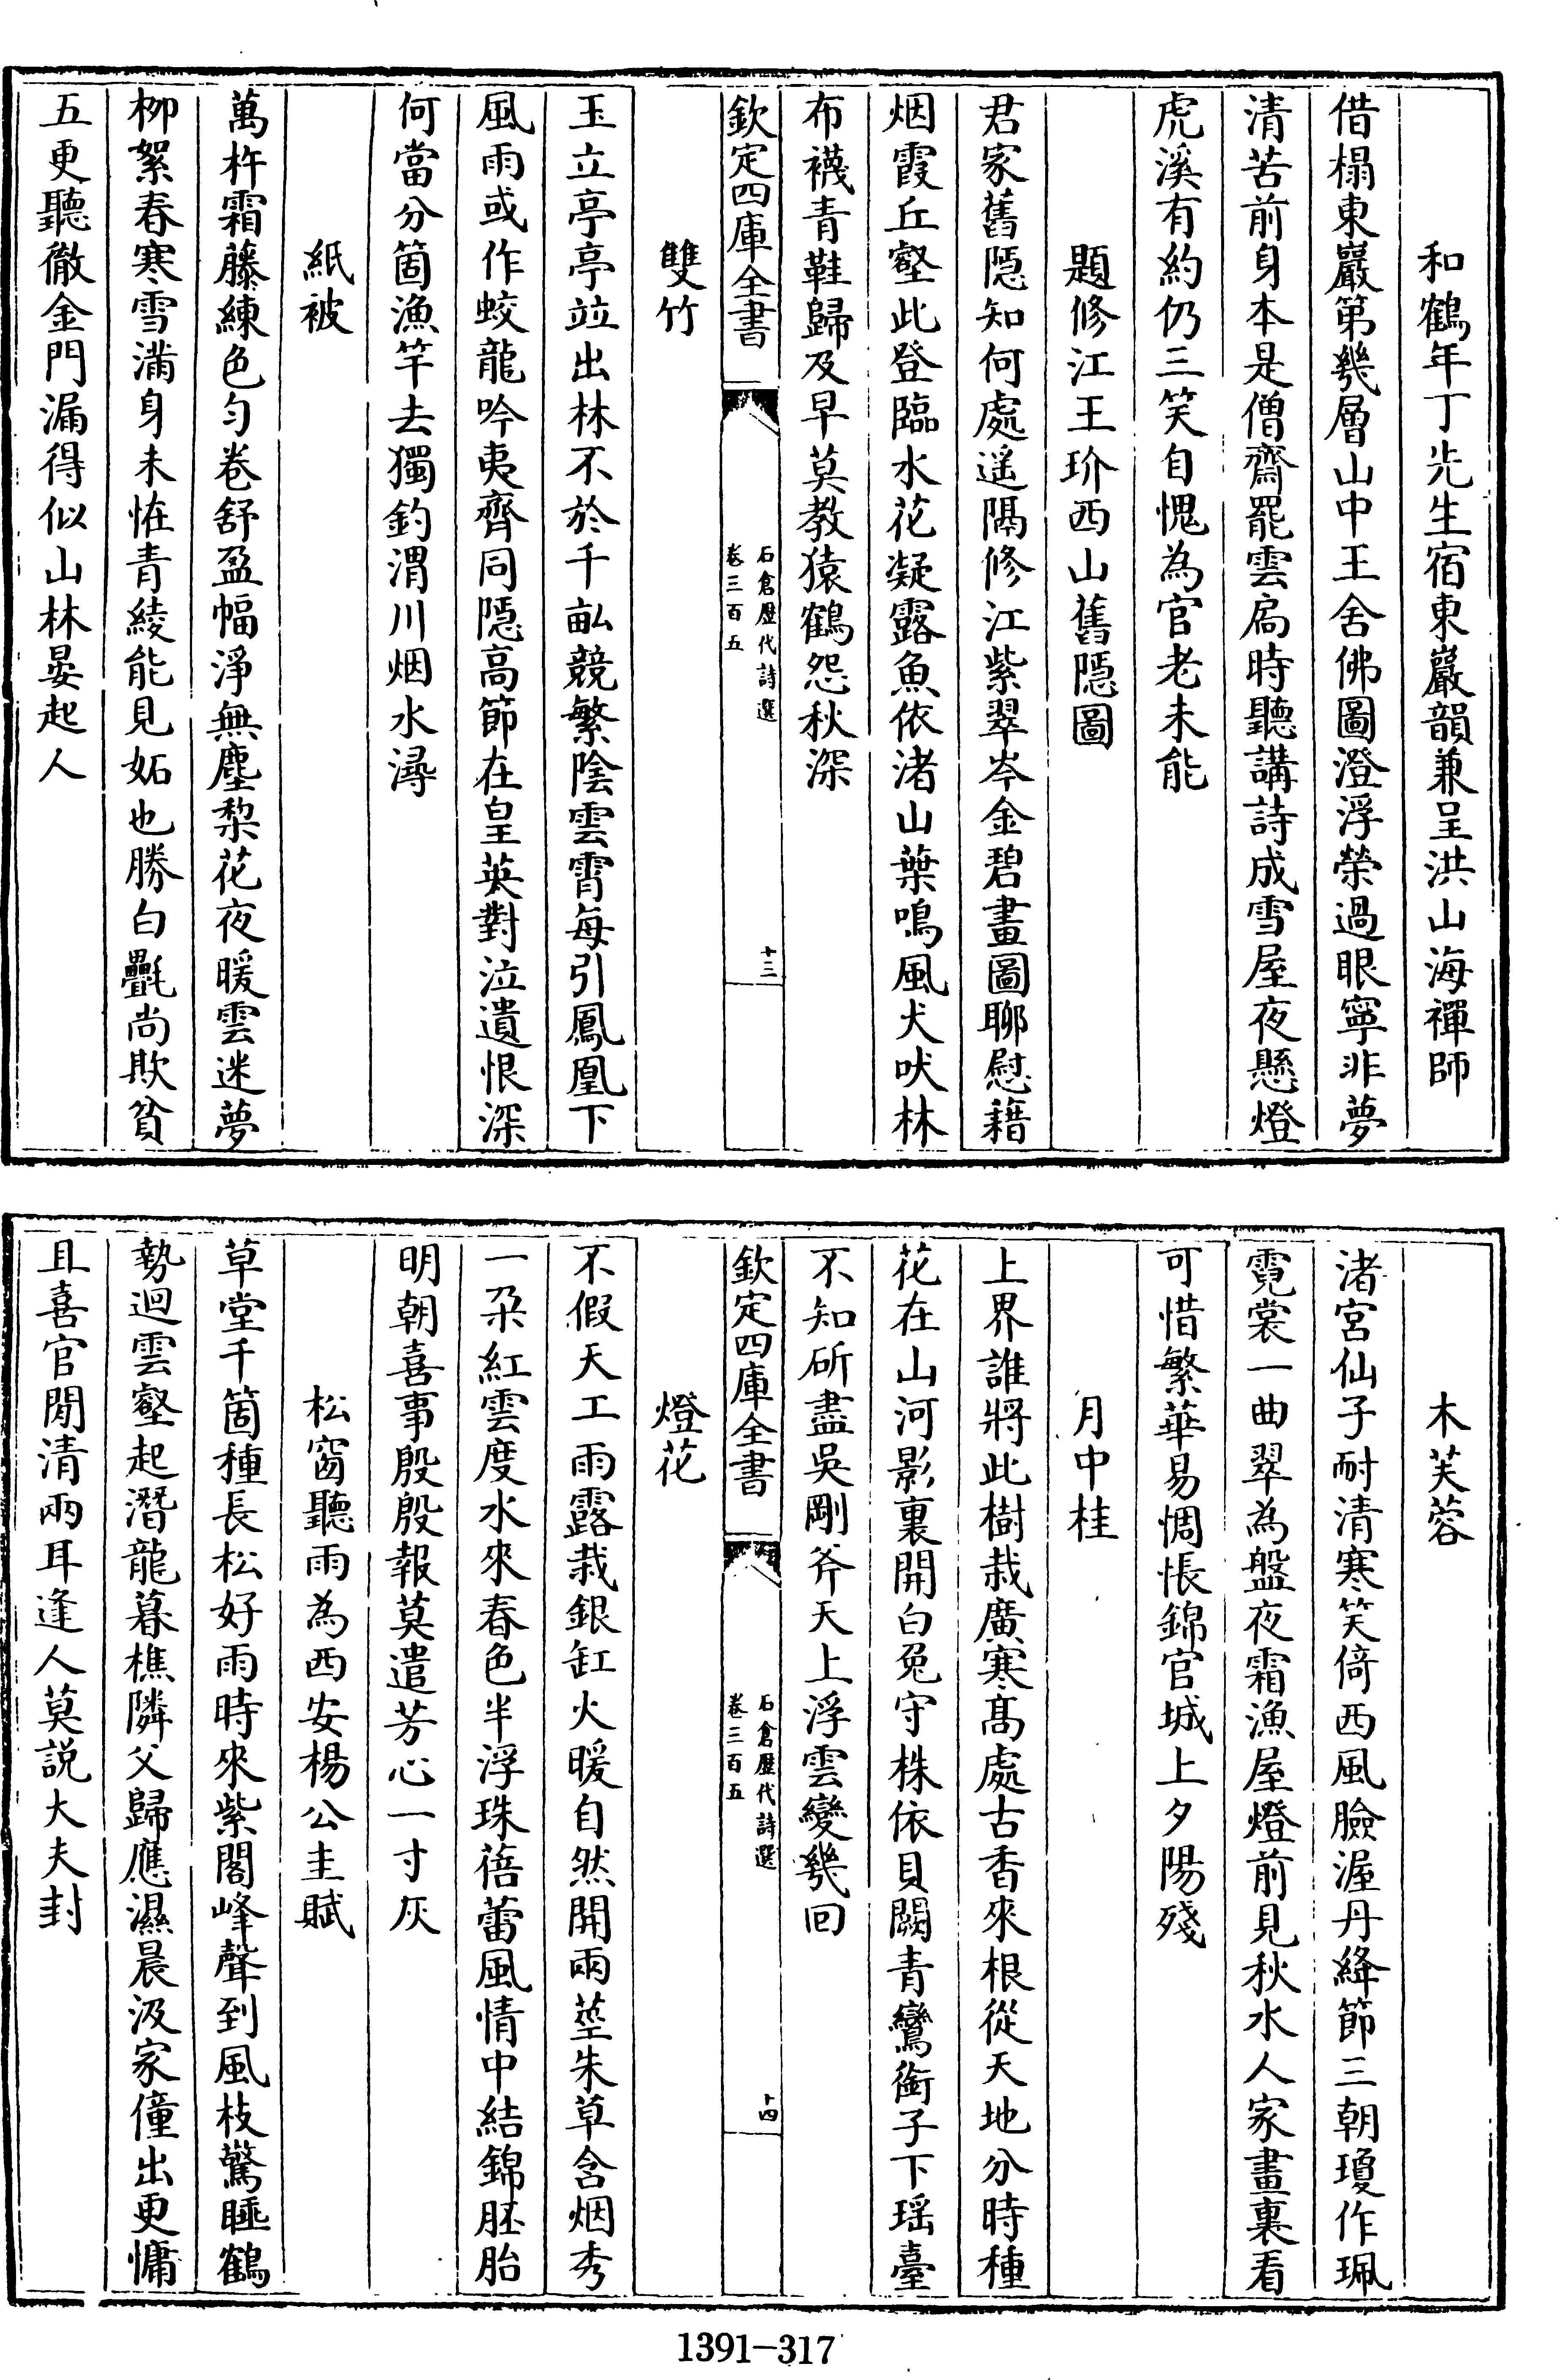 和鶴年丁先生宿東巖韻兼呈洪山海禪師
借榻東巖第幾層山中王舍佛圖澄浮榮過眼寧非夢
清苦前身本是僧齋罷雲扃時聽講詩成雪屋夜懸燈
虎溪有約仍三笑自愧為官老未能
題修江王玠西山舊隱圖
君家舊隱知何處遥隔修江紫翠岑金碧畫圖聊慰藉
烟霞丘壑此登臨水花凝露魚依渚山葉鳴風犬吠林
布襪青鞋歸及早莫教猿鶴怨秋深
欽定四庫全書
石倉歷代詩選
卷三百五
十三
雙竹
玉立亭亭竝出林不於千畝競繁陰雲霄每引鳳凰下
風雨或作蛟龍吟夷齊同隱高節在皇英對泣遺恨深
何當分箇漁竿去獨釣渭川烟水潯
紙被
萬杵霜藤練色勻卷舒盈幅淨無塵梨花夜暖雲迷夢
柳絮春寒雪滿身未恠青綾能見妬也勝白氎尚欺貧
五更聽徹金門漏得似山林晏起人
木芙蓉
渚宮仙子耐清寒笑倚西風臉渥丹絳節三朝瓊作珮
霓裳一曲翠為盤夜霜漁屋燈前見秋水人家畫裏看
可惜繁華易惆悵錦官城上夕陽殘
月中桂
上界誰將此樹栽廣寒高處古香來根從天地分時種
花在山河影裏開白兔守株依貝闕青鸞銜子下瑶臺
不知斫盡吳剛斧天上浮雲變幾回
欽定四庫全書
石倉歷代詩選
卷三百五
十四
燈花
不假天工雨露栽銀缸火暖自然開兩莖朱草含烟秀
一朵紅雲度水來春色半浮珠蓓蕾風情中結錦胚胎
明朝喜事殷殷報莫遣芳心一寸灰
松窗聽雨為西安楊公圭賦
草堂千箇種長松好雨時來紫閣峰聲到風枝驚睡鶴
勢迴雲壑起潛龍暮樵隣父歸應濕晨汲家僮出更慵
且喜官閒清兩耳逢人莫説大夫封
1391-317